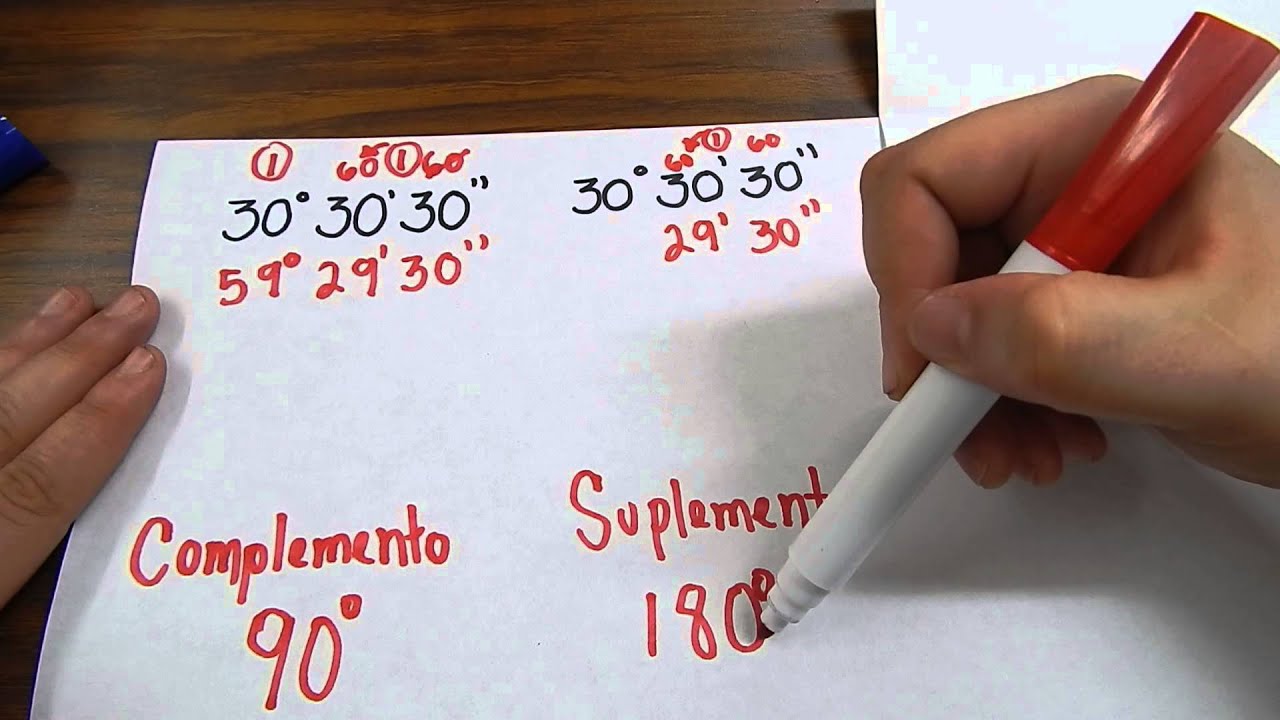 ① 60 ① 60
30° 30' 30''
59° 29' 30''
60 ① 60
30° 30' 30''
29' 30''
Complemento
90°
Suplement
180°